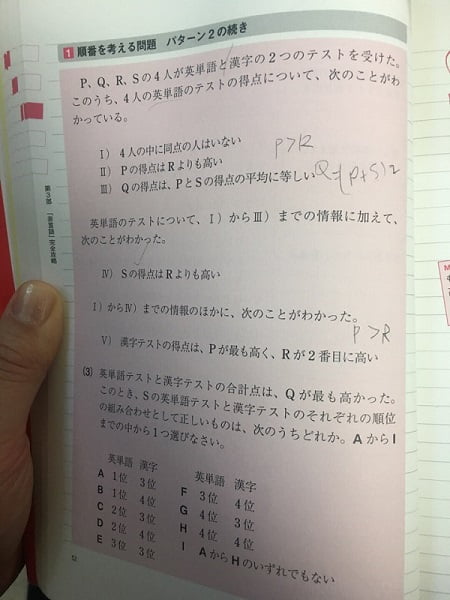 1 順番を考える問題 パターン2の続き
P、Q、R、Sの4人が英単語と漢字の2つのテストを受けた。
このうち、4人の英単語のテストの得点について、次のことがわ
かっている。
Ⅰ) 4人の中に同点の人はいない
P>R
Ⅱ) Pの得点はRよりも高い
Ⅲ) Qの得点は、PとSの得点の平均に等しい
英単語のテストについて、Ⅰ)からⅢ)までの情報に加えて、
次のことがわかった。
Ⅳ) Sの得点はRよりも高い
Ⅰ)からⅣ)までの情報のほかに、次のことがわかった。
P>R
Ⅴ) 漢字テストの得点は、Pが最も高く、Rが2番目に高い
(3) 英単語テストと漢字テストの合計点は、Qが最も高かった。
このとき、Sの英単語テストと漢字テストのそれぞれの順位
の組み合わせとして正しいものは、次のうちどれか。AからI
までの中から1つ選びなさい。
英単語 漢字
A 1位 3位
B 1位 4位
C 2位 3位
D 2位 4位
E 3位 3位
英単語 漢字
F 3位 4位
G 4位 3位
H 4位 4位
I AからHのいずれでもない
52
第3部 「非言語」完全攻略